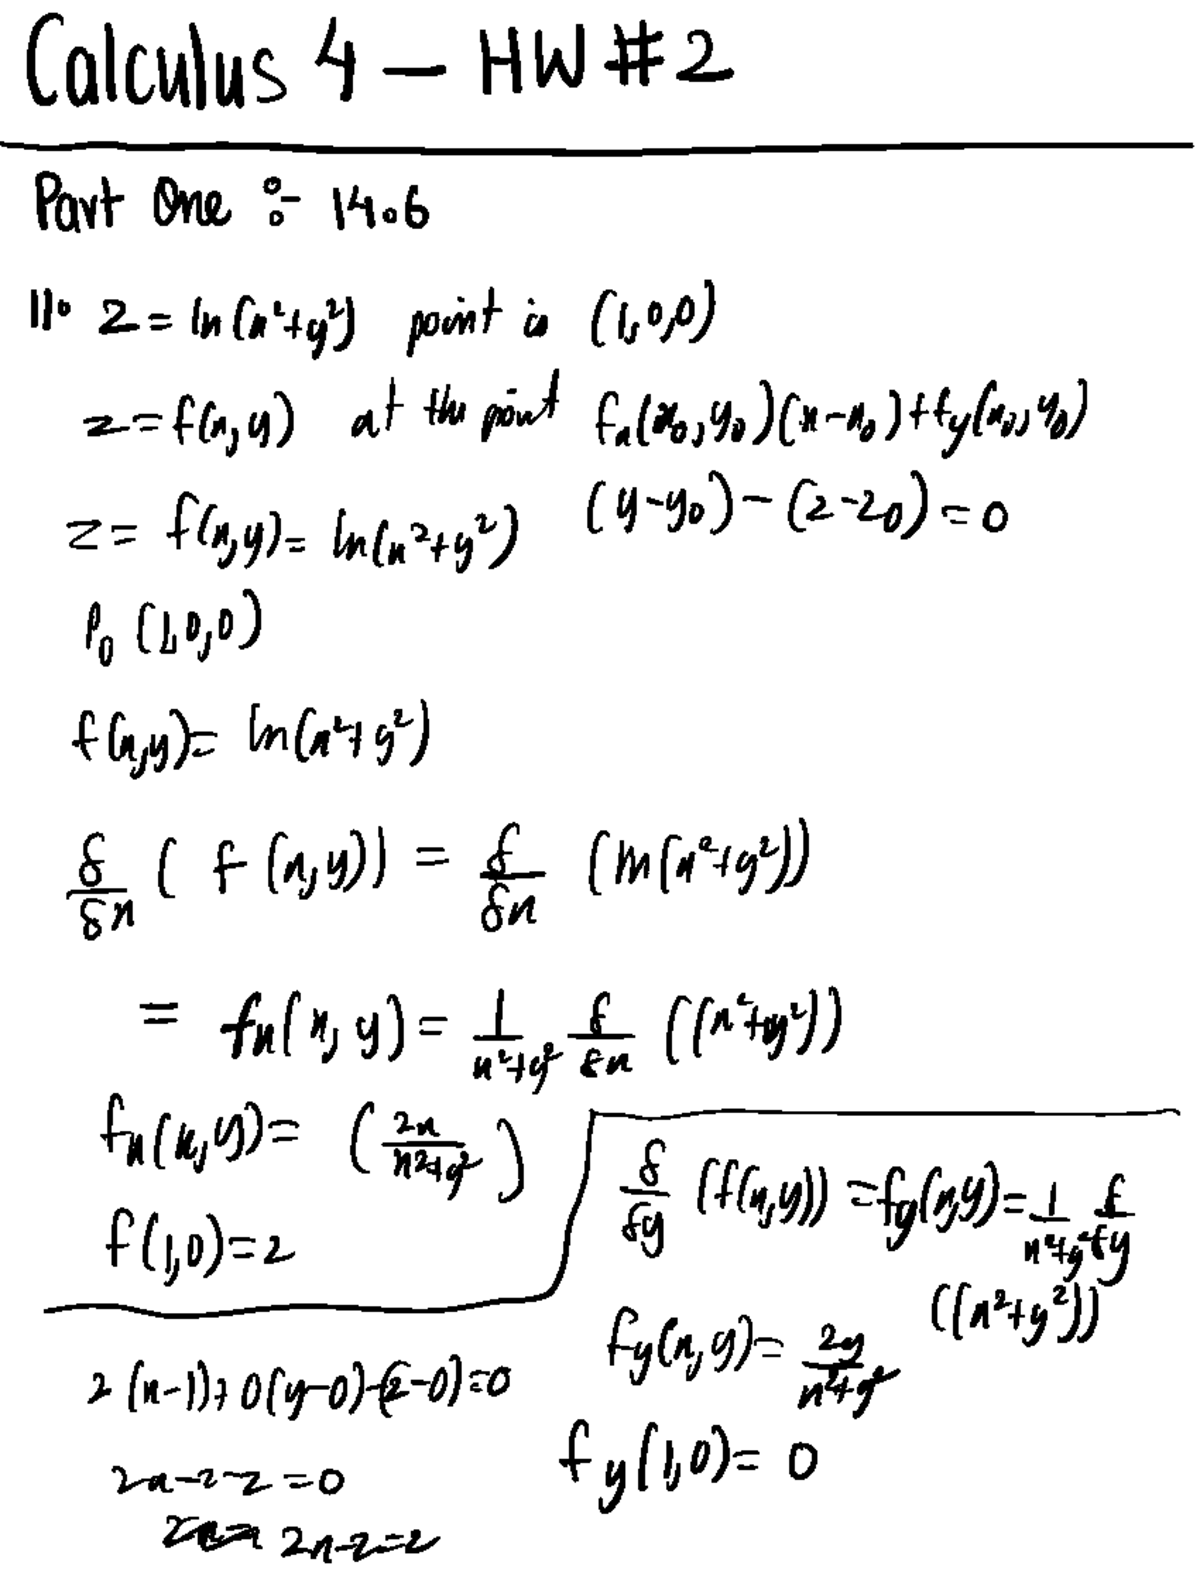 Calculus 4 – HW #2
Part One :- 14.6
11. z = ln(x²+y²) point is (1,0,0)
z = f(x,y) at the point fₓ(x₀,y₀)(x-x₀)+f_y(x₀,y₀)
(y-y₀) - (z-z₀) = 0
z = f(x,y) = ln(x²+y²)
P₀ (1,0,0)
f(x,y) = ln(x²+y²)
δ/δx ( f (x,y)) = δ/δx (ln(x²+y²))
= fₓ(x,y) = 1/(x²+y²) δ/δx ((x²+y²))
fₓ(x,y) = (2x/(x²+y²))
f(1,0) = 2
δ/δy (f(x,y)) = f_y(x,y) = 1/(x²+y²) δ/δy
((x²+y²))
f_y(x,y) = 2y/(x²+y²)
f_y(1,0) = 0
2(x-1)+0(y-0)-(z-0)=0
2x-2-z=0
2x-z=2